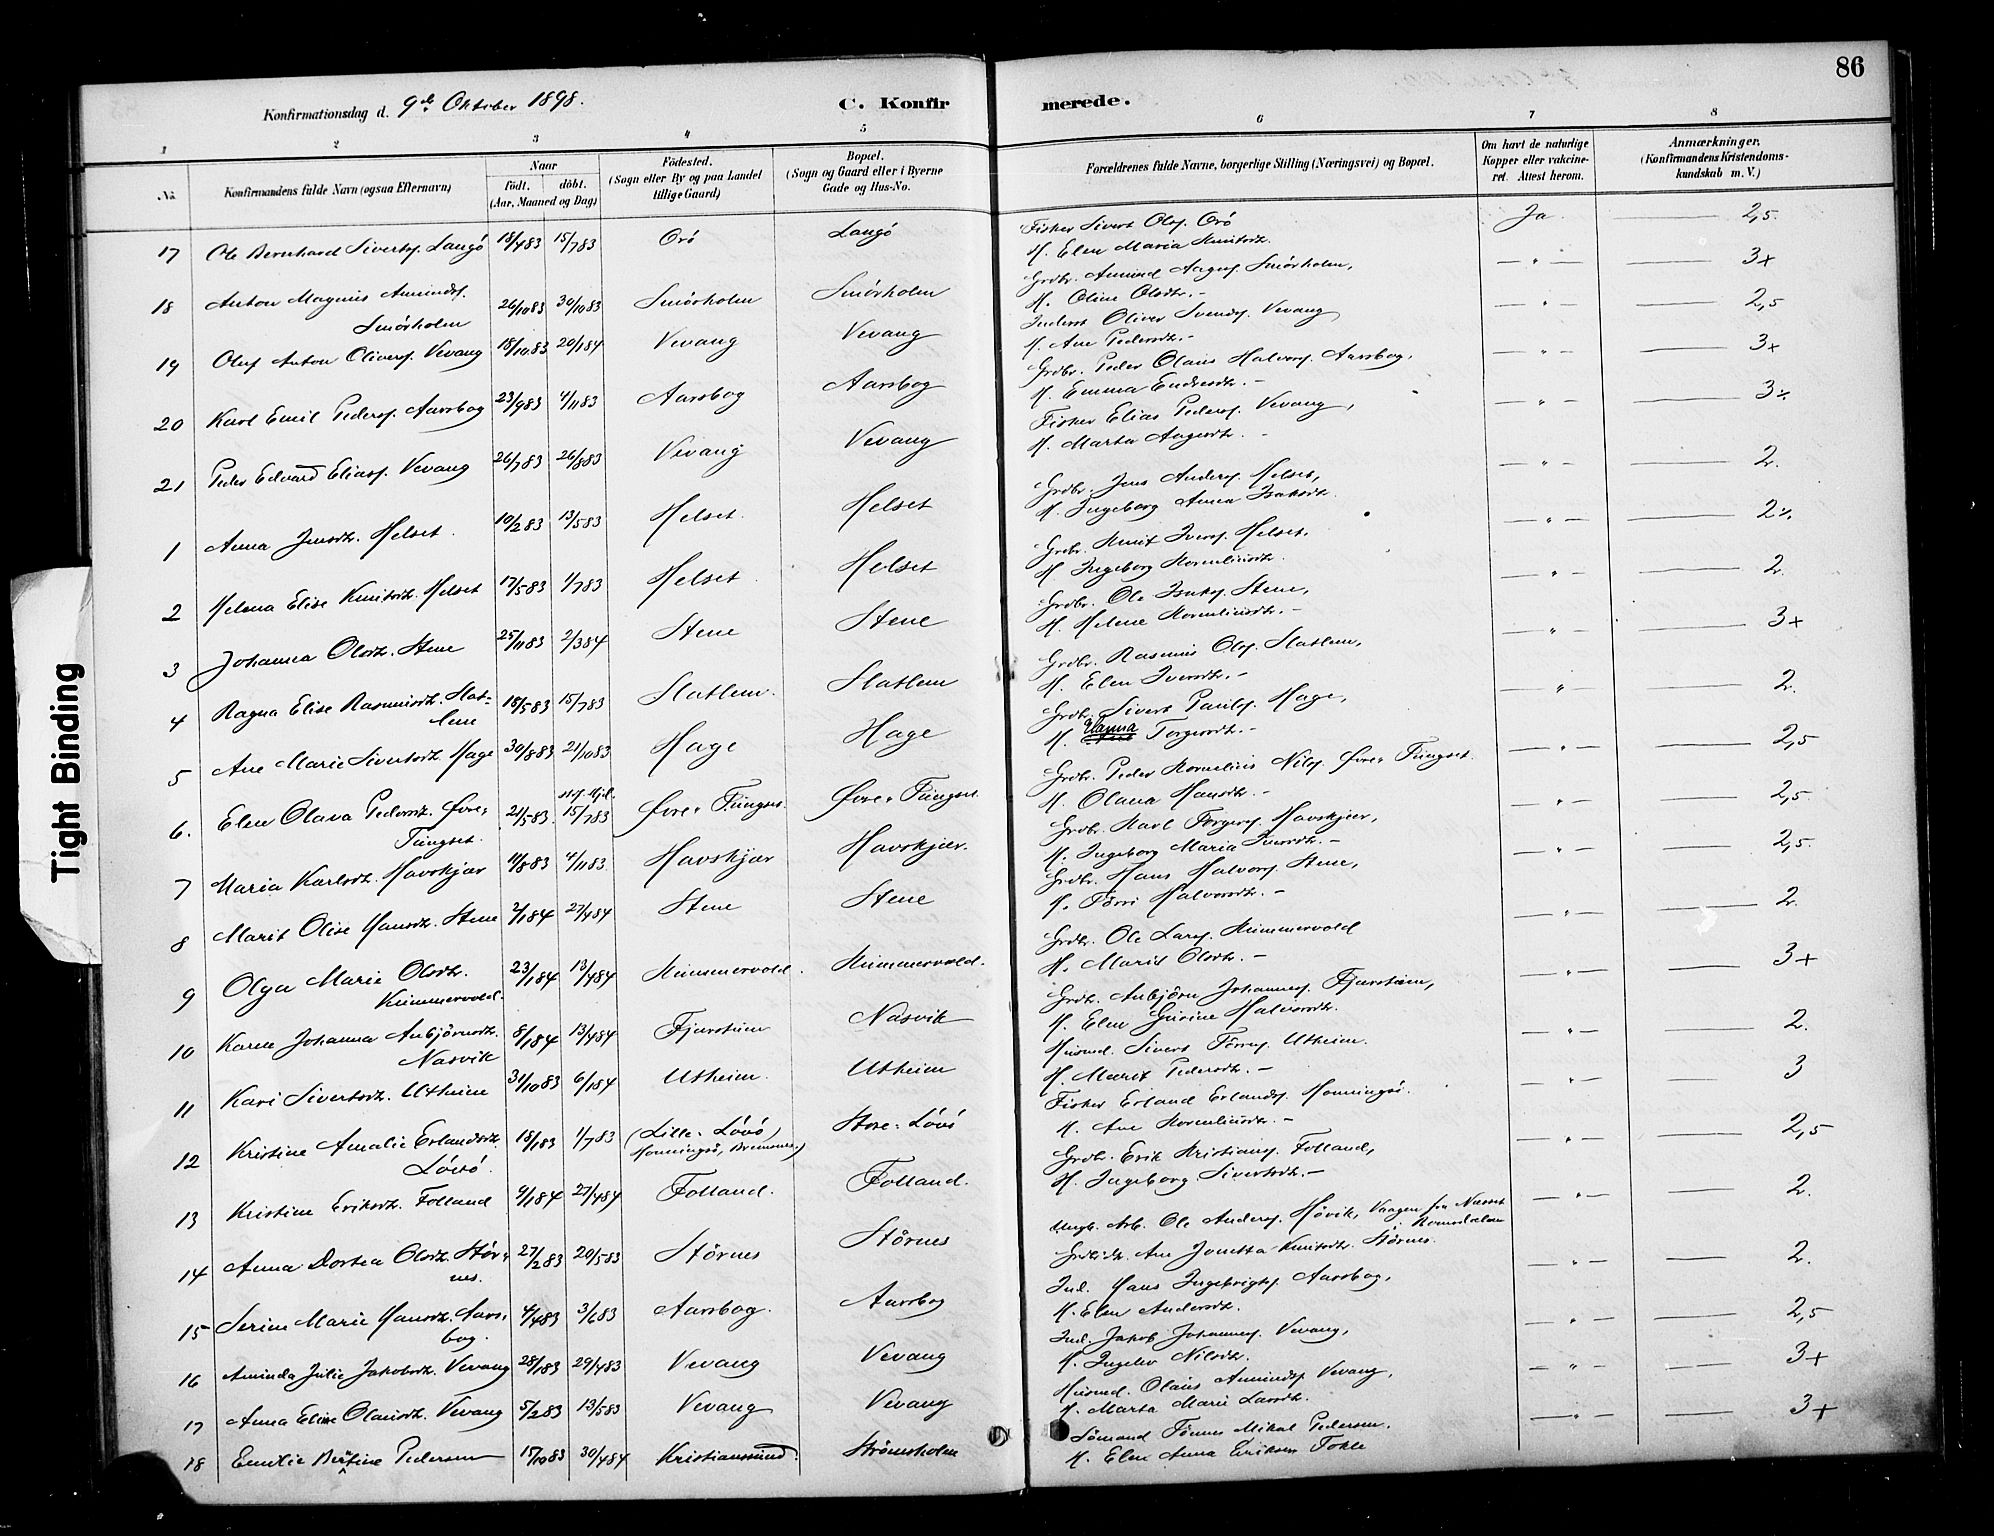 86
Konfirmationsdag d. 9de Oktober 1898.
C. Konfirmerede.
1 2 3 4 5 6 7 8
No.
Konfirmandens fulde Navn (ogsaa Efternavn)
Naar
födt. döbt.
(Aar, Maaned og Dag)
Födested.
(Sogn eller By og paa Landet
tillige Gaard)
Bopæl.
(Sogn og Gaard eller i Byerne
Gade og Hus-No.
Forældrenes fulde Navne, borgerlige Stilling (Næringsvei) og Bopæl.
Om havt de naturlige
Kopper eller vakcine-
ret. Attest herom.
Anmærkninger.
(Konfirmandens Kristendoms-
kundskab m. V.)
17 Ole Bernhard Sivertsf. Langö 18/4 83 15/7 83 Orö Langö Fisker Sivert Olsf. Orö Ja 2,5
H. Elen Maria Knutsdtr.
18 Anton Magnus Amundsf. 26/10 83 30/10 83 Smörholm Smörholm Grdbr. Amund Aagesf. Smörholm, — " — 3+
Smörholm H. Oline Olsdtr. —
19 Oluf Anton Oliversf. Vevang 18/10 83 20/1 84 Vevang Vevang Inderst Oliver Svendsf. Vevang — " — 2,5
H. Ane Pedersdtr. —
20 Karl Emil Pedersf. Aarsbog 23/9 83 4/11 83 Aarsbog Aarsbog Grdbr. Peder Olaus Halvorsf. Aarsbog, — " — 3+
H. Emma Endresdtr. —
21 Peder Edvard Eliasf. Vevang 26/7 83 26/8 83 Vevang Vevang Fisker Elias Pedersf. Vevang, — " — 3%
H. Marta Aagesdtr. —
1 Anna Jensdtr. Helset 10/2 83 13/5 83 Helset Helset Grdbr. Jens Andersf. Helset, — " — 2.
H. Ingeborg Anna Isaksdtr.
2 Helena Elise Knutsdtr. Helset 17/5 83 1/7 83 Helset Helset Grdbr. Knut Iversf. Helset. — " — 2%
H. Ingeborg Kornliusdtr.
3 Johanna Olsdtr. Stene 25/11 83 2/3 84 Stene Stene Grdbr. Ole Isaksf. Stene, — " — 2.
H. Helene Kornliusdtr. —
4 Ragna Elise Rasmusdtr. Slat- 18/5 83 15/7 83 Slatlem. Slatlem Grdbr. Rasmus Olsf. Slatlem, — " — 3+
lem H. Elen Iversdtr. —
5 Ane Marie Sivertsdtr. Hage 30/8 83 21/10 83 Hage Hage Grdbr. Sivert Paulsf. Hage, — " — 2.
H. Hanna Torgersdtr. —
6. Elen Olava Pedersdtr. Øvre- 21/5 83 15/7 83 Øvre-Tungset. Øvre-Tungset Grdbr. Peder Kornelius Nilsf. Øvre-Tungset. — " — 2,5
Tungset. H. Olana Hansdtr. —
7 Maria Karlsdtr. Havskjær 11/8 83 4/11 83 Havskjær Havskjær. Grdbr. Karl Torgersf. Havskjær, — " — 2,5.
H. Ingeborg Maria Iversdtr. —
8 Marit Olise Hansdtr. Stene 2/1 84 27/4 84 Stene Stene Grdbr. Hans Halvorsf. Stene, — " — 2,5.
H. Törri Halvorsdtr. —
9 Olga Marie Olsdtr. 23/1 84 13/4 84 Kummervold. Kummervold. Grdbr. Ole Larsf. Kummervold — " — 2.
Kummervold. H. Marit Olsdtr. —
10 Karen Johanna Anbjörnsdtr. 8/1 84 13/4 84 Fjærstuen Nasvik Grdbr. Anbjörn Johannesf. Fjærstuen, — " — 3+
Nasvik H. Elen Gurine Halvorsdtr.
11 Kari Sivertsdtr. Utheim 31/10 83 6/1 84 Utheim. Utheim Husmd. Sivert Törresf. Utheim. — " — 2.
H. Marit Pedersdtr. —
12 Kristine Amalie Erlandsdtr. 18/1 83 1/7 83 (Lille-Lövö, Store-Lövö Fisker Erland Erlandsf. Honningsö. — " — 3
Lövö. Honningsö, Bremsnes) H. Ane Kornliusdtr. —
13 Kristine Eriksdtr. Folland 9/1 84 27/4 84 Folland. Folland. Grdbr. Erik Kristiansf. Folland, — " — 2,5
H. Ingeborg Sivertsdtr. —
14 Anna Dortea Olsdtr. Stör- 27/2 83 20/5 83 Störnes Störnes Ungk. Arb. Ole Andersf. Hövik, Vaagen fra Nesset — " — 2.
nes. Romsdalen
Grdbrdtr. Ane Jonetta Knutsdtr. Störnes.
15 Serine Marie Hansdtr. Aars- 4/4 83 3/6 83 Aarsbog. Aarsbog Ind. Hans Ingebrigtsf. Aarsbog, — " — 2.
bog. H. Elen Andersdtr.
16 Aminda Julie Jakobsdtr. Vevang 28/1 83 29/4 83 Vevang Vevang Ind. Jakob Johannesf. Vevang, — " — 2,5
H. Ingelev Nilsdtr.
17 Anna Eline Olausdtr. Vevang 5/2 83 13/5 83 Vevang Vevang Husmd. Olaus Amundsf. Vevang, — " — 3+
H. Marta Marie Larsdtr.
18 Emilie Bertine Pedersen 15/10 83 30/4 84 Kristianssund. Strömsholm Sömand Tönnes Mikal Pedersen. — " — 3+
H. Elen Anna Eriksen Tokle
Tight Binding